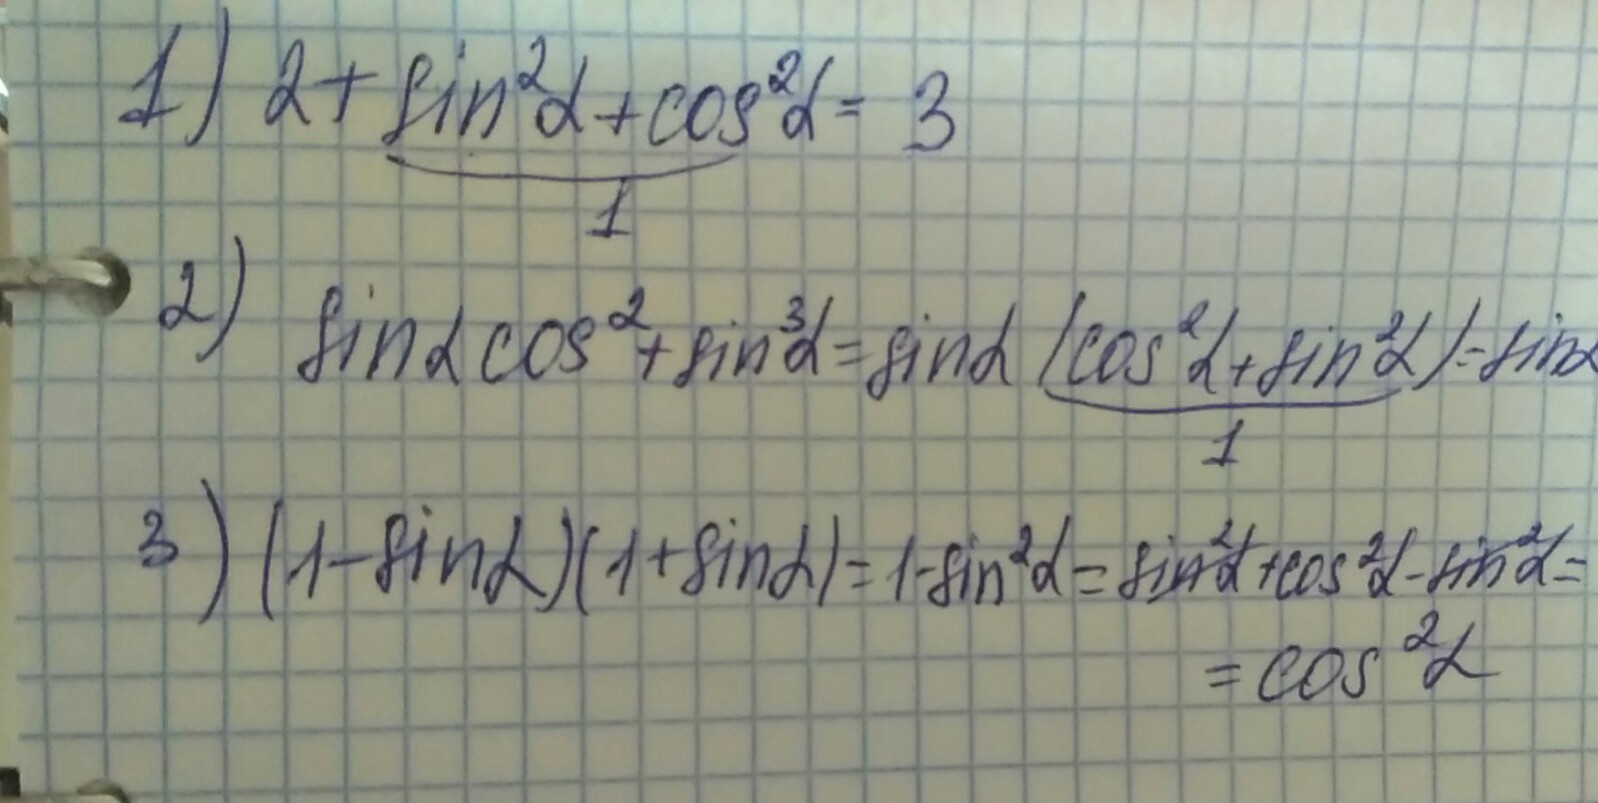 1) 2 + sin²α + cos²α = 3
1
2) sinα cos² + sin³α = sinα (cos²α + sin²α) = sinα
1
3) (1 - sinα)(1 + sinα) = 1 - sin²α = sin²α + cos²α - sin²α =
= cos²α